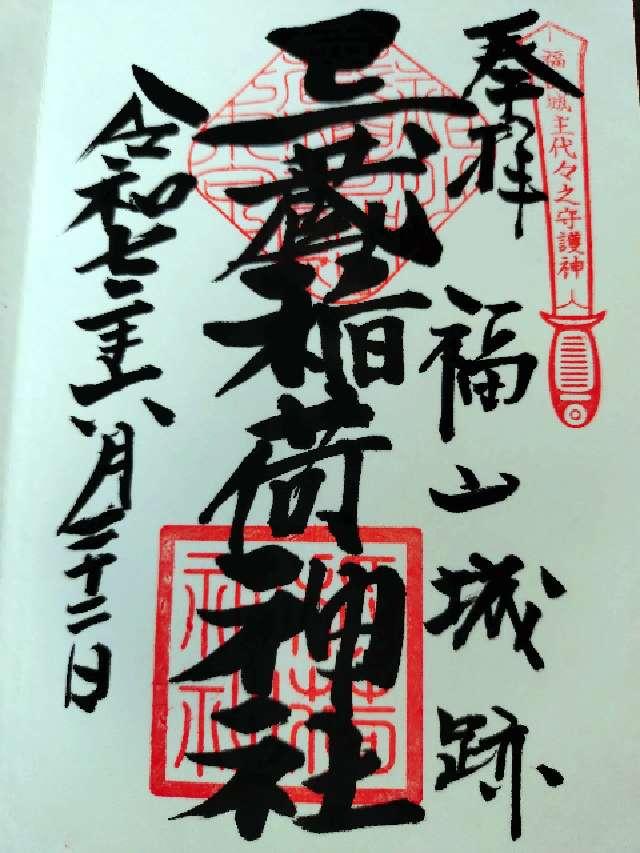 福山藩主代々之守護神
奉拝
福山城跡
三蔵稲荷神社
稲荷
神社
令和七年六月二十二日